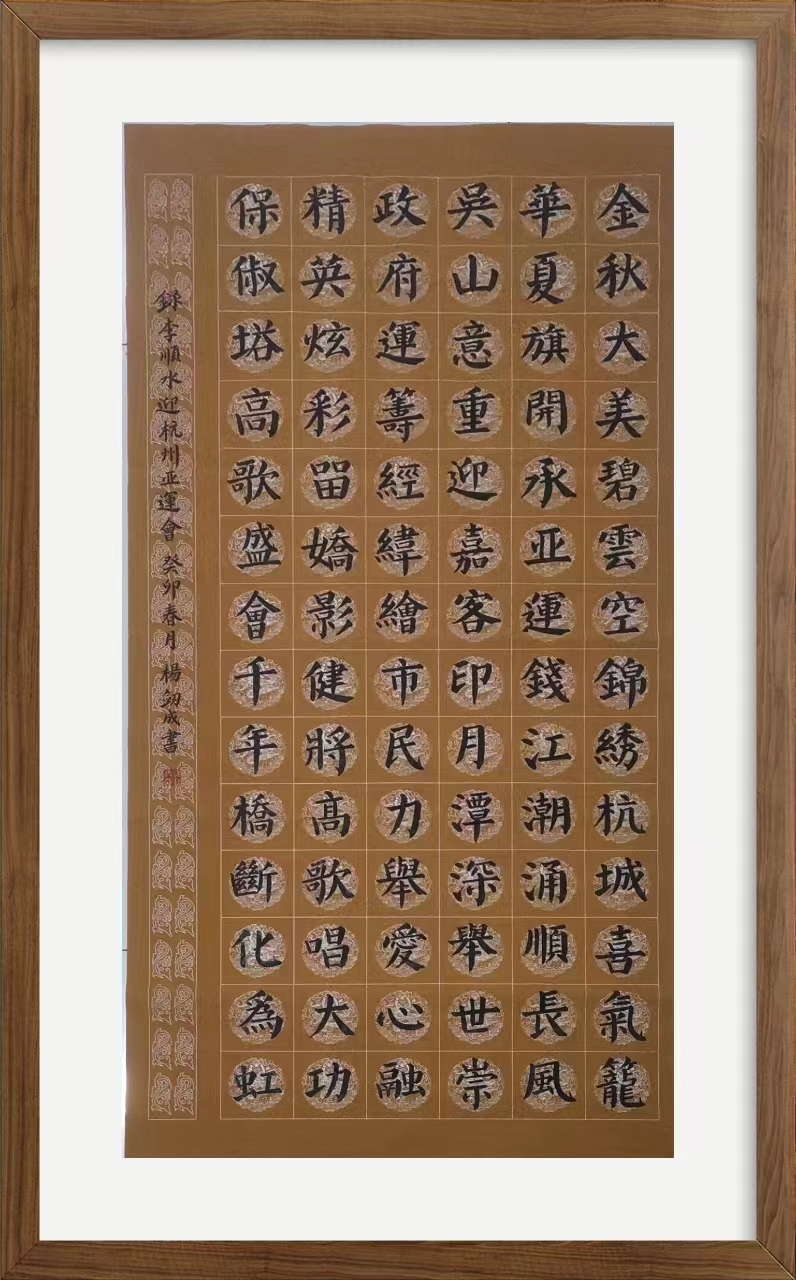 金秋大美碧雲空錦綉杭城喜氣籠
華夏旗開承亚運錢江潮涌順長風
吳山意重迎嘉客印月潭深舉世崇
政府運籌經緯繪市民力舉愛心融
精英炫彩留嬌影健將高歌唱大功
保俶塔高歌盛會千年橋斷化為虹
録李順水迎杭州亚運會 癸卯春月 楊幼成書